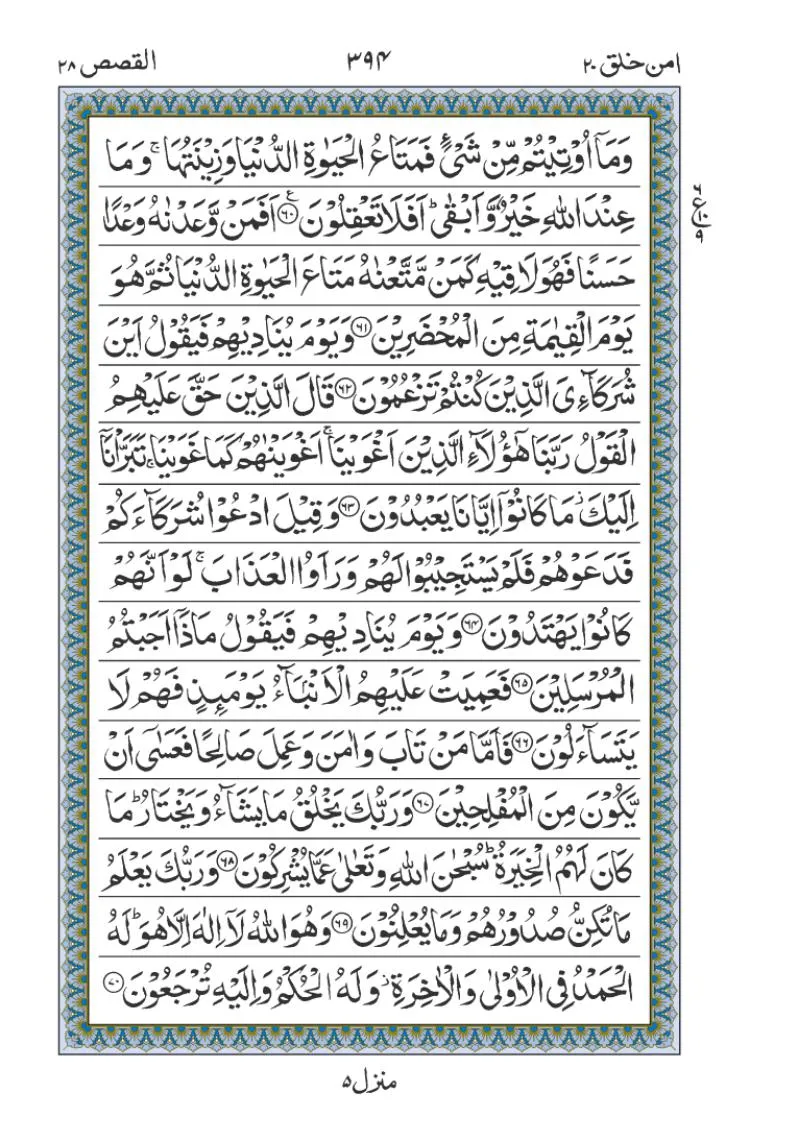 امن خلق ۲۰ ۳۹۴ القصص ۲۸
وَمَاۤ اُوْتِيْتُمْ مِّنْ شَيْءٍ فَمَتَاعُ الْحَيٰوةِ الدُّنْيَا وَزِيْنَتُهَا ۚ وَمَا
عِنْدَ اللّٰهِ خَيْرٌ وَّاَبْقٰى ؕ اَفَلَا تَعْقِلُوْنَ ۟ع ۶۰ اَفَمَنْ وَّعَدْنٰهُ وَعْدًا
حَسَنًا فَهُوَ لَاقِيْهِ كَمَنْ مَّتَّعْنٰهُ مَتَاعَ الْحَيٰوةِ الدُّنْيَا ثُمَّ هُوَ
يَوْمَ الْقِيٰمَةِ مِنَ الْمُحْضَرِيْنَ ۶۱ وَيَوْمَ يُنَادِيْهِمْ فَيَقُوْلُ اَيْنَ
شُرَكَآءِيَ الَّذِيْنَ كُنْتُمْ تَزْعُمُوْنَ ۶۲ قَالَ الَّذِيْنَ حَقَّ عَلَيْهِمُ
الْقَوْلُ رَبَّنَا هٰۤؤُلَآءِ الَّذِيْنَ اَغْوَيْنَا ۚ اَغْوَيْنٰهُمْ كَمَا غَوَيْنَا ۚ تَبَرَّاْنَاۤ
اِلَيْكَ ؗ مَا كَانُوْۤا اِيَّانَا يَعْبُدُوْنَ ۶۳ وَقِيْلَ ادْعُوْا شُرَكَآءَكُمْ
فَدَعَوْهُمْ فَلَمْ يَسْتَجِيْبُوْا لَهُمْ وَرَاَوُا الْعَذَابَ ۚ لَوْ اَنَّهُمْ
كَانُوْا يَهْتَدُوْنَ ۶۴ وَيَوْمَ يُنَادِيْهِمْ فَيَقُوْلُ مَاذَاۤ اَجَبْتُمُ
الْمُرْسَلِيْنَ ۶۵ فَعَمِيَتْ عَلَيْهِمُ الْاَنْۢبَآءُ يَوْمَئِذٍ فَهُمْ لَا
يَتَسَآءَلُوْنَ ۶۶ فَاَمَّا مَنْ تَابَ وَاٰمَنَ وَعَمِلَ صَالِحًا فَعَسٰۤى اَنْ
يَّكُوْنَ مِنَ الْمُفْلِحِيْنَ ۶۷ وَرَبُّكَ يَخْلُقُ مَا يَشَآءُ وَيَخْتَارُ ؕ مَا
كَانَ لَهُمُ الْخِيَرَةُ ؕ سُبْحٰنَ اللّٰهِ وَتَعٰلٰى عَمَّا يُشْرِكُوْنَ ۶۸ وَرَبُّكَ يَعْلَمُ
مَا تُكِنُّ صُدُوْرُهُمْ وَمَا يُعْلِنُوْنَ ۶۹ وَهُوَ اللّٰهُ لَاۤ اِلٰهَ اِلَّا هُوَ ؕ لَهُ
الْحَمْدُ فِي الْاُوْلٰى وَالْاٰخِرَةِ ؗ وَلَهُ الْحُكْمُ وَاِلَيْهِ تُرْجَعُوْنَ ۷۰
منزل ۵
۶
ع ۱۰
۹